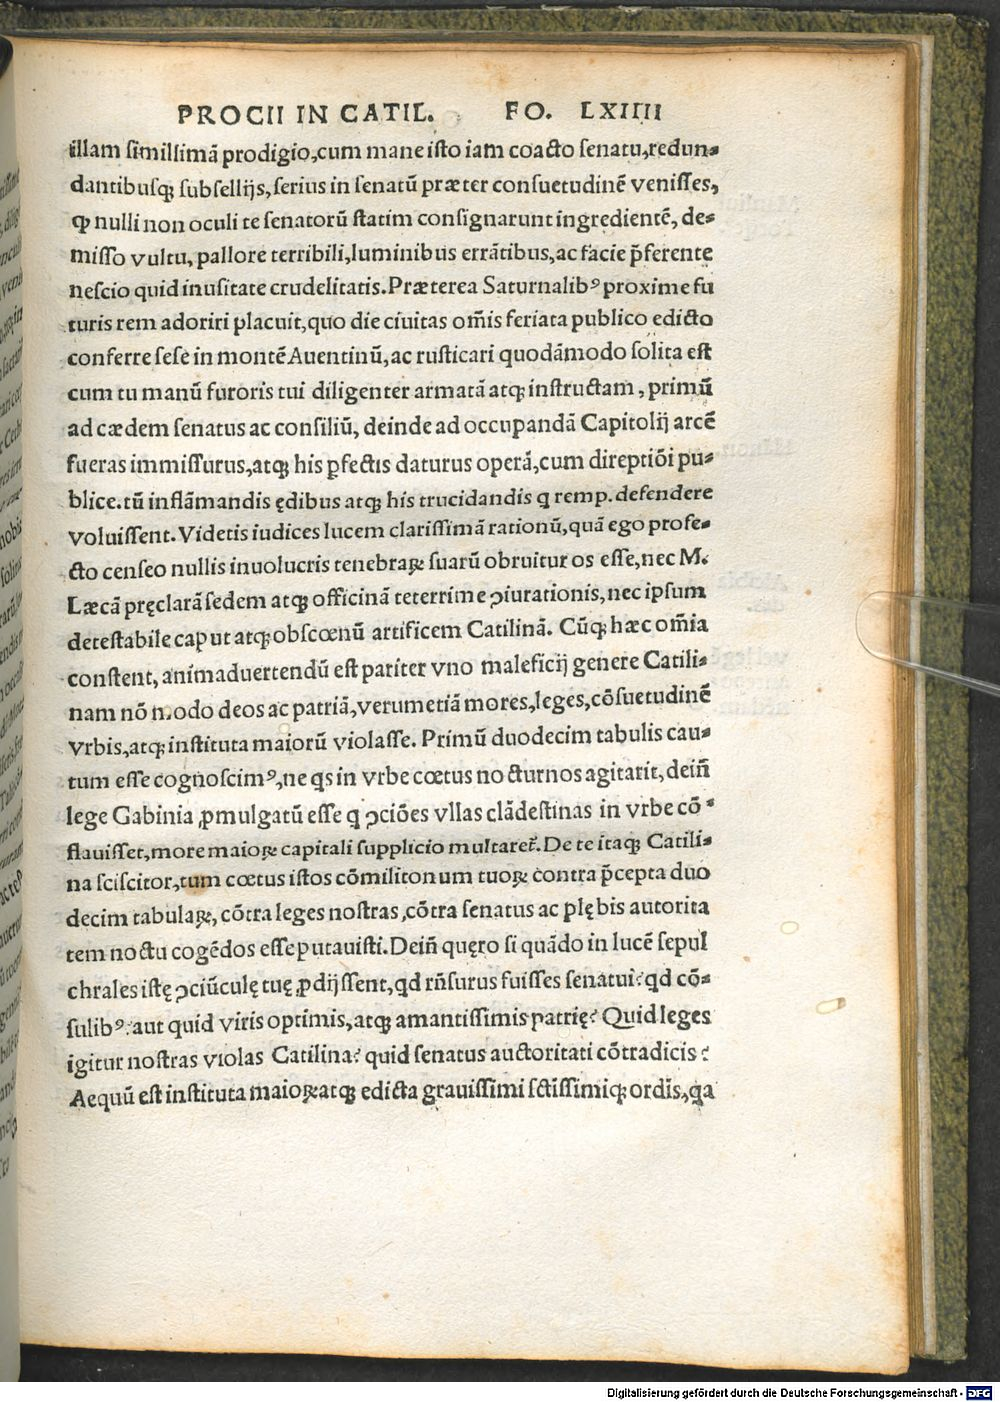 PROCII IN CATIL. FO. LXIIII
illam simillimã prodigio,cum mane isto iam coacto senatu,redun-
dantibusq; subsellijs,serius in senatũ præter consuetudinẽ venisses,
ꝙ nulli non oculi te senatorũ statim consignarunt ingredientẽ, de-
misso vultu, pallore terribili,luminibus errãtibus,ac facie p̃ferente
nescio quid inusitate crudelitatis.Præterea Saturnalibꝰ proxime fu
turis rem adoriri placuit,quo die ciuitas om̃is feriata publico edicto
conferre sese in montẽ Auentinũ, ac rusticari quodãmodo solita est
cum tu manũ furoris tui diligenter armatã atq; instructam, primũ
ad cædem senatus ac consiliũ, deinde ad occupandã Capitolij arcẽ
fueras immissurus,atq; his ꝑfectis daturus operã,cum direptiõi pu-
blice.tũ inflãmandis ędibus atq; his trucidandis q remp. defendere
voluissent. Videtis iudices lucem clarissimã rationũ,quã ego profe-
cto censeo nullis inuolucris tenebraꝝ suarũ obruitur os esse,nec M.
Læcã pręclarã sedem atq; officinã teterrime ꝯiurationis, nec ipsum
detestabile caput atq; obscœnũ artificem Catilinã. Cũq; hæc om̃ia
constent, animaduertendũ est pariter vno maleficij genere Catili-
nam nõ modo deos ac patriã,verumetiã mores,leges,cõsuetudinẽ
vrbis,atq; instituta maiorũ violasse. Primũ duodecim tabulis cau-
tum esse cognoscimꝰ,ne qs in vrbe cœtus nocturnos agitarit, dein̄
lege Gabinia ꝓmulgatũ esse q ꝯciões vllas clãdestinas in vrbe cõ-
flauisset,more maioꝝ capitali supplicio multaret̃. De te itaq; Catili-
na sciscitor,tum cœtus istos cõmilitonum tuoꝝ contra p̃cepta duo
decim tabulaꝝ, cõtra leges nostras,cõtra senatus ac plębis autorita
tem noctu cogẽdos esse putauisti. Dein̄ quęro si quãdo in lucẽ sepul
chrales istę ꝯciũculę tuę ꝓdijssent,qd rñsurus fuisses senatui? qd cõ-
sulibꝰ? aut quid viris optimis,atq; amantissimis patrię? Quid leges
igitur nostras violas Catilina? quid senatus auctoritati cõtradicis?
Aequũ est instituta maioꝝ atq; edicta grauissimi sctissimiq; ordis,qa
Digitalisierung gefördert durch die Deutsche Forschungsgemeinschaft - DFG